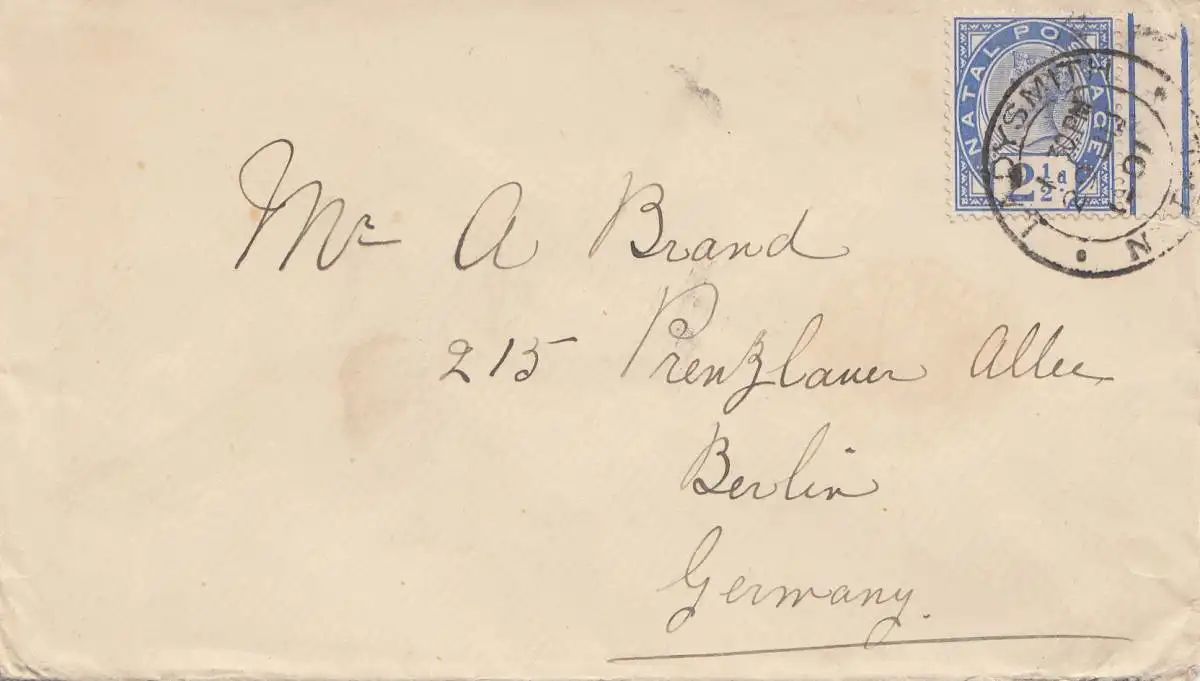 NATAL POSTAGE
2½d
LADYSMITH
01
Mr A Brand
215 Prenzlauer Allee
Berlin
Germany.